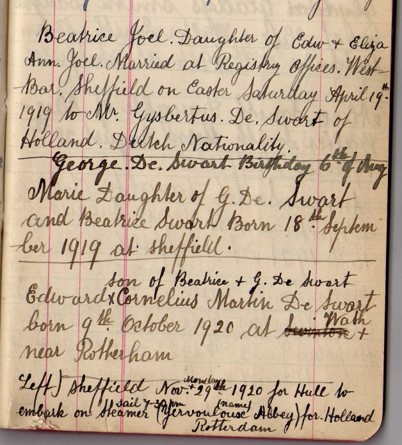 Beatrice Joel. Daughter of Edw + Eliza
Ann. Joel. Married at Registry Offices. West-
Bar. Sheffield on Easter Saturday April 19th
1919 to Mr. Gysbertus. De. Swart of
Holland. Dutch Nationality.
George. De. Swart Birthday 6th of Aug
Marie Daughter of G. De. Swart
and Beatrice Swart Born 18th Septem
ber 1919 at Sheffield.
son of Beatrice + G. De Swart
Edward x Cornelius Martin De Swart
born 9th October 1920 at Swinton x Wath
near Rotherham
Left) Sheffield Nov. Monday 29th 1920 for Hull to
11 sail + 30 pm (name)
embark on Steamer (Jervoulouse Abbey) for Holland
Rotterdam